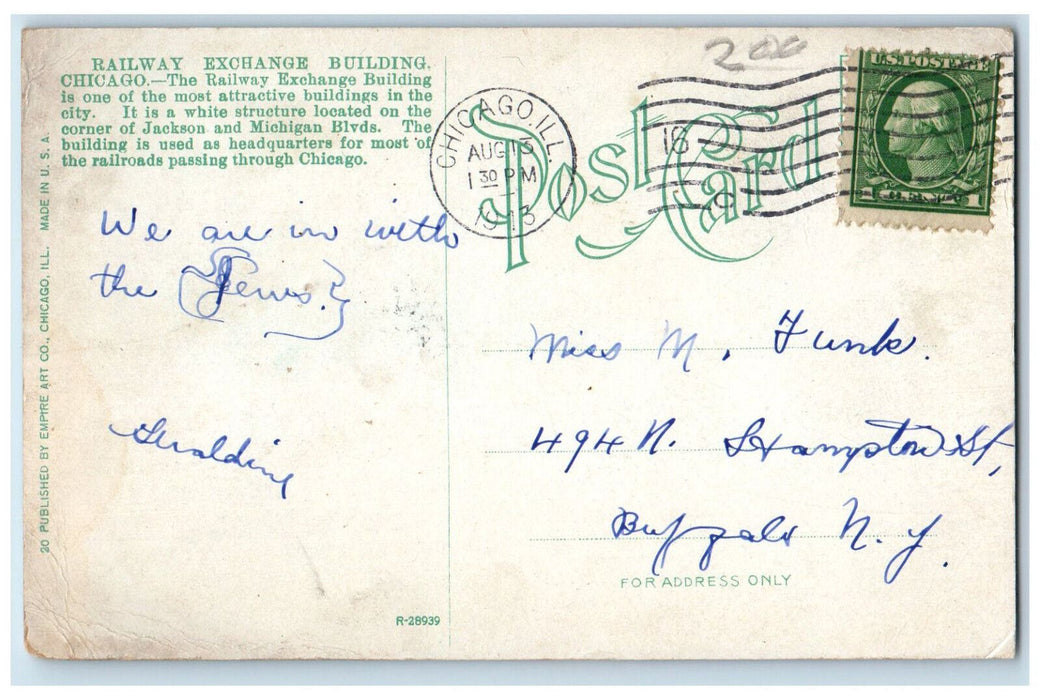 200
RAILWAY EXCHANGE BUILDING,
CHICAGO.—The Railway Exchange Building
is one of the most attractive buildings in the
city. It is a white structure located on the
corner of Jackson and Michigan Blvds. The
building is used as headquarters for most of
the railroads passing through Chicago.
Post Card
CHICAGO, ILL.
AUG 15
1 30 PM
1913
16
U.S. POSTAGE
1 1
We are in with
the {Jews.}
Geraldine
Miss M. Funk.
494 N. Hampton St,
Buffalo N. Y.
FOR ADDRESS ONLY
R-28939
20 PUBLISHED BY EMPIRE ART CO., CHICAGO, ILL. MADE IN U. S. A.